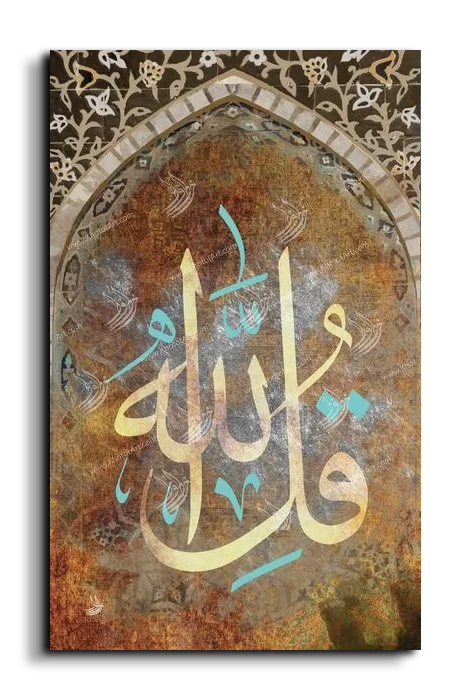 قُلِ اللّٰهُ